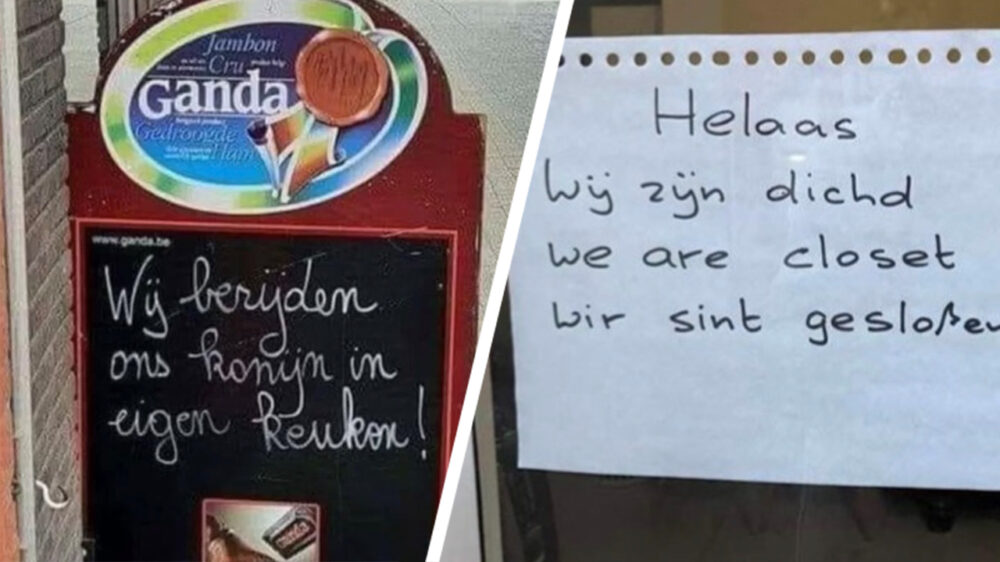 Jambon
Cru
Ganda
Gedroogde
Ham
www.ganda.be
Wij berijden
ons konijn in
eigen keuken!
Helaas
Wij zijn dichd
we are closet
wir sint gesloßen